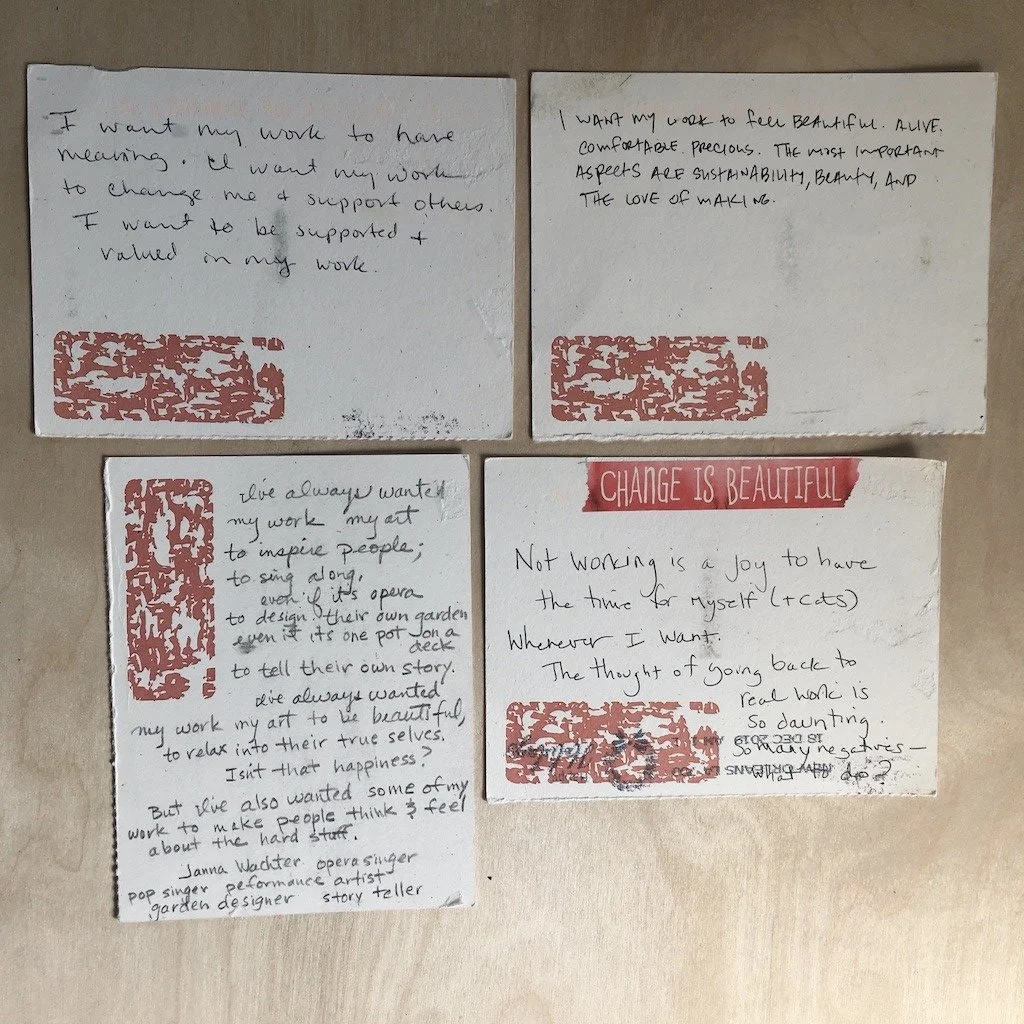 I want my work to have
meaning. I want my work
to change me + support others.
I want to be supported +
valued in my work.
I WANT MY WORK TO FEEL BEAUTIFUL. ALIVE.
COMFORTABLE. PRECIOUS. THE MOST IMPORTANT
ASPECTS ARE SUSTAINABILITY, BEAUTY, AND
THE LOVE OF MAKING.
I've always wanted
my work my art
to inspire people;
to sing along,
even if it's opera
to design their own garden
even if its one pot on a
deck
to tell their own story.
I've always wanted
my work my art to be beautiful,
to relax into their true selves.
Isn't that happiness?
But I've also wanted some of my
work to make people think & feel
about the hard stuff.
Janna Wachter opera singer
pop singer peformance artist
garden designer story teller
CHANGE IS BEAUTIFUL
Not working is a joy to have
the time for myself (+cats)
Whenever I want.
The thought of going back to
real work is
so daunting.
So many negatives—
what to do?
NEW ORLEANS LA
18 DEC 2019